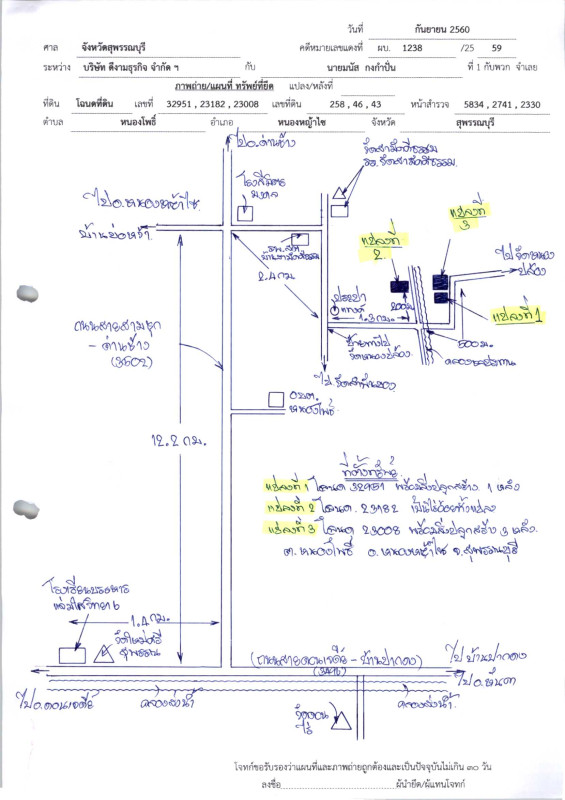 วันที่ กันยายน 2560
ศาล จังหวัดสุพรรณบุรี คดีหมายเลขแดงที่ ผบ. 1238 /25 59
ระหว่าง บริษัท ดีงามธุรกิจ จำกัด ฯ กับ นายมนัส กงกำปั่น ที่ 1 กับพวก จำเลย
ภาพถ่าย/แผนที่ ทรัพย์ที่ยึด แปลง/หลังที่
ที่ดิน โฉนดที่ดิน เลขที่ 32951 , 23182 , 23008 เลขที่ดิน 258 , 46 , 43 หน้าสำรวจ 5834 , 2741 , 2330
ตำบล หนองโพธิ์ อำเภอ หนองหญ้าไซ จังหวัด สุพรรณบุรี
ไปอ.ด่านช้าง
วัดสามัคคีธรรม
รร.วัดสามัคคีธรรม
โรงสีมิตร
มงคล
ไปอ.หนองหญ้าไซ
แปลงที่
3
บ้านบ่อหว้า
แปลงที่
2
รพ.สต.
บ้านสามัคคีธรรม
ไปวัดหนอง
ปล้อง
2.4 กม.
ประปา
แทงค์
200ม.
1.3 กม.
แปลงที่ 1
500 ม.
ถนนสายสามชุก
- ด่านช้าง
(3502)
ป้ายทางไป
วัดหนองปล้อง
คลองชลประทาน
อบต.
หนองโพธิ์
12.2 กม.
ที่ตั้งทรัพย์
แปลงที่ 1 โฉนด 32951 พร้อมสิ่งปลูกสร้าง 1 หลัง
แปลงที่ 2 โฉนด. 23182 เป็นไร่อ้อยทั้งแปลง
แปลงที่ 3 โฉนด 23008 พร้อมสิ่งปลูกสร้าง 3 หลัง.
ต. หนองโพธิ์ อ.หนองหญ้าไซ จ.สุพรรณบุรี
โรงเรียนบรรหาร
แจ่มใสวิทยา 6
1.4 กม.
วัดใหม่ศรี
สุพรรณ
(ถนนสายดอนเจดีย์ - บ้านปากดง)
ไปบ้านปากดง
ไปอ.ดอนเจดีย์
คลองส่งน้ำ
คลองส่งน้ำ
โจทก์ขอรับรองว่าแผนที่และภาพถ่ายถูกต้องและเป็นปัจจุบันไม่เกิน ๓๐ วัน
ลงชื่อ ผู้นำยึด/ผู้แทนโจทก์